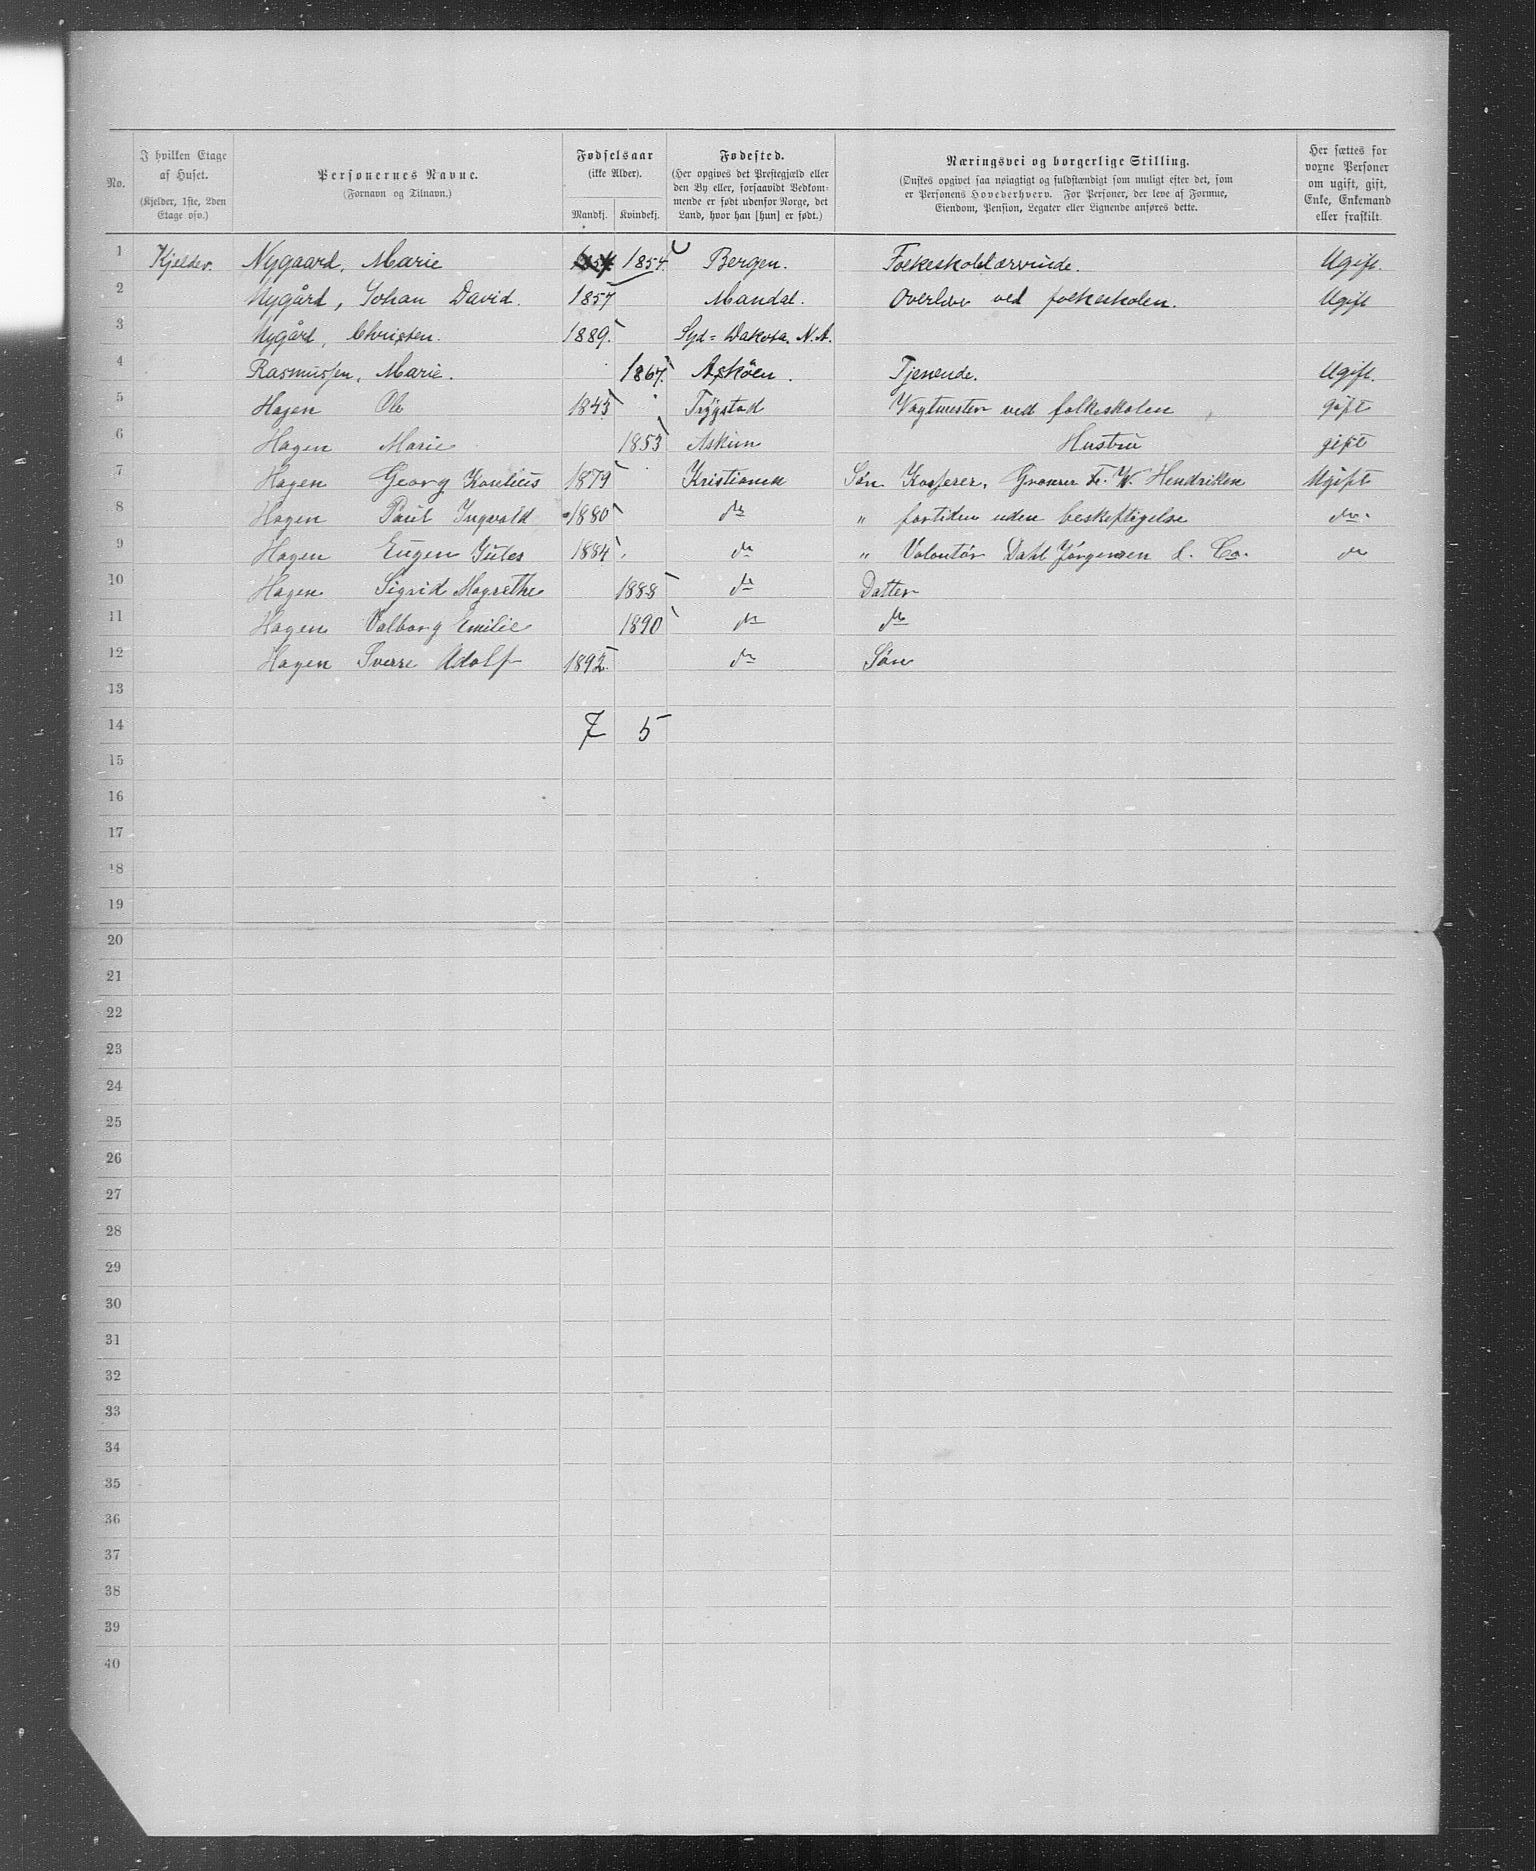 No.
I hvilken Etage af Huset. (Kjelder, 1ste, 2den Etage osv.)
Personernes Navne. (Fornavn og Tilnavn.)
Fødselsaar (ikke Alder). Mandkj. Kvindekj.
Fødested. (Her opgives det Prestegjæld eller den By eller, forsaavidt Vedkommende er født udenfor Norge, det Land, hvor han [hun] er født.)
Næringsvei og borgerlige Stilling. (Ønskes opgivet saa nøiagtigt og fuldstændigt som muligt efter det, som er Personens Hovederhverv. For Personer, der leve af Formue, Eiendom, Pension, Legater eller Lignende anføres dette.
Her sættes for voxne Personer om ugift, gift, Enke, Enkemand eller fraskilt.
1 Kjelder. Nygaard, Marie 1854 1854. Bergen. Folkeskolelærerinde. Ugift.
2 Nygård, Johan David. 1857 Mandal. Overlærer ved folkeskolen. Ugift
3 Nygård, Christen. 1889. Syd=Dakota. N.A.
4 Rasmussen, Marie. 1867. Askøen. Tjenende. Ugift.
5 Hagen Ole 1843 Trygstad Vagtmester ved folkeskolen gift
6 Hagen Marie 1853 Askim Hustru gift
7 Hagen Georg 1879 Kristiania Søn Kasserer, F. W. Hendriksen Ugift
8 Hagen Paul Ingvald 1880 do " fortiden uden beskeftigelse do.
9 Hagen Eugen Jules 1884 do " Volontör Dahl Jörgensen & Co. do
10 Hagen Sigrid Magrethe 1888 do Datter
11 Hagen Valborg Emilie 1890 do do
12 Hagen Sverre Adolf 1892. do Søn
13
14 7 5
15
16
17
18
19
20
21
22
23
24
25
26
27
28
29
30
31
32
33
34
35
36
37
38
39
40